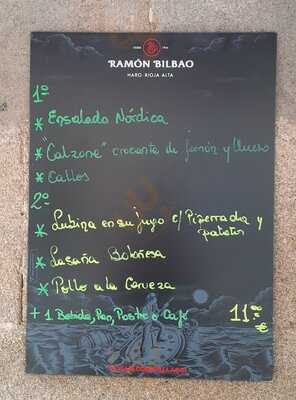 RAMÓN BILBAO
HARO RIOJA ALTA
1º
* Ensalada Nórdica
* "Calzone" crocante de jamón y Queso
* Callos
2º
* Lubina en su jugo c/ Piperrada y
patatas
* Lasaña Boloñesa
* Pollo a la Cerveza
+ 1 Bebida, Pan, Postre o Café 11.00 €